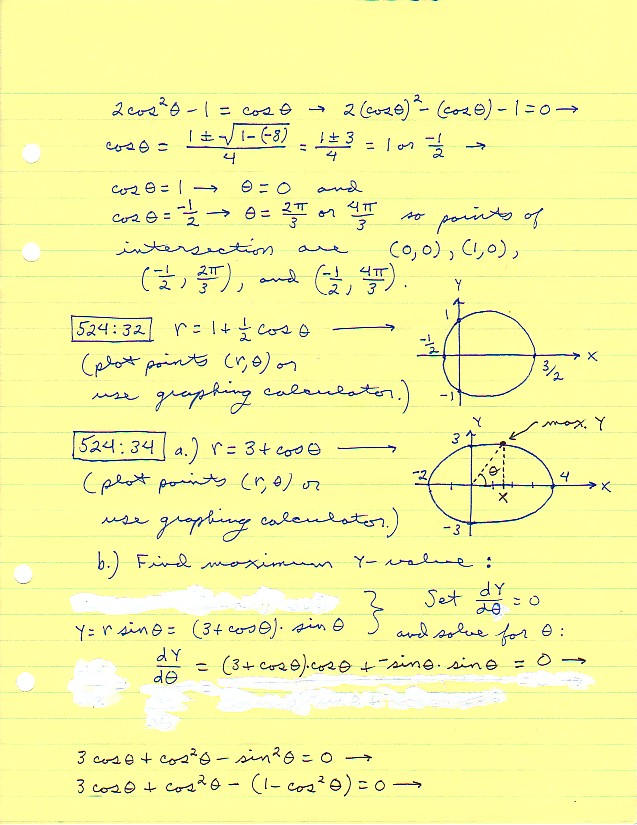 2cos²θ - 1 = cosθ → 2(cosθ)² - (cosθ) - 1 = 0 →
cosθ = (1 ± √(1-(-8)))/4 = (1±3)/4 = 1 or -1/2 →
cosθ = 1 → θ = 0 and
cosθ = -1/2 → θ = 2π/3 or 4π/3 so points of
intersection are (0,0), (1,0),
(-1/2, 2π/3), and (-1/2, 4π/3).
524:32 r = 1 + 1/2 cosθ →
(plot points (r,θ) or
use graphing calculator.)
Y
1
-1/2
3/2
X
-1
524:34 a.) r = 3 + cosθ →
(plot points (r,θ) or
use graphing calculator.)
Y
max. Y
3
-2
θ
4
X
x
-3
b.) Find maximum Y-value :
Set dY/dθ = 0
Y = r sinθ = (3+cosθ)· sinθ } and solve for θ:
dY/dθ = (3+cosθ)·cosθ + -sinθ· sinθ = 0 →
3cosθ + cos²θ - sin²θ = 0 →
3cosθ + cos²θ - (1-cos²θ) = 0 →